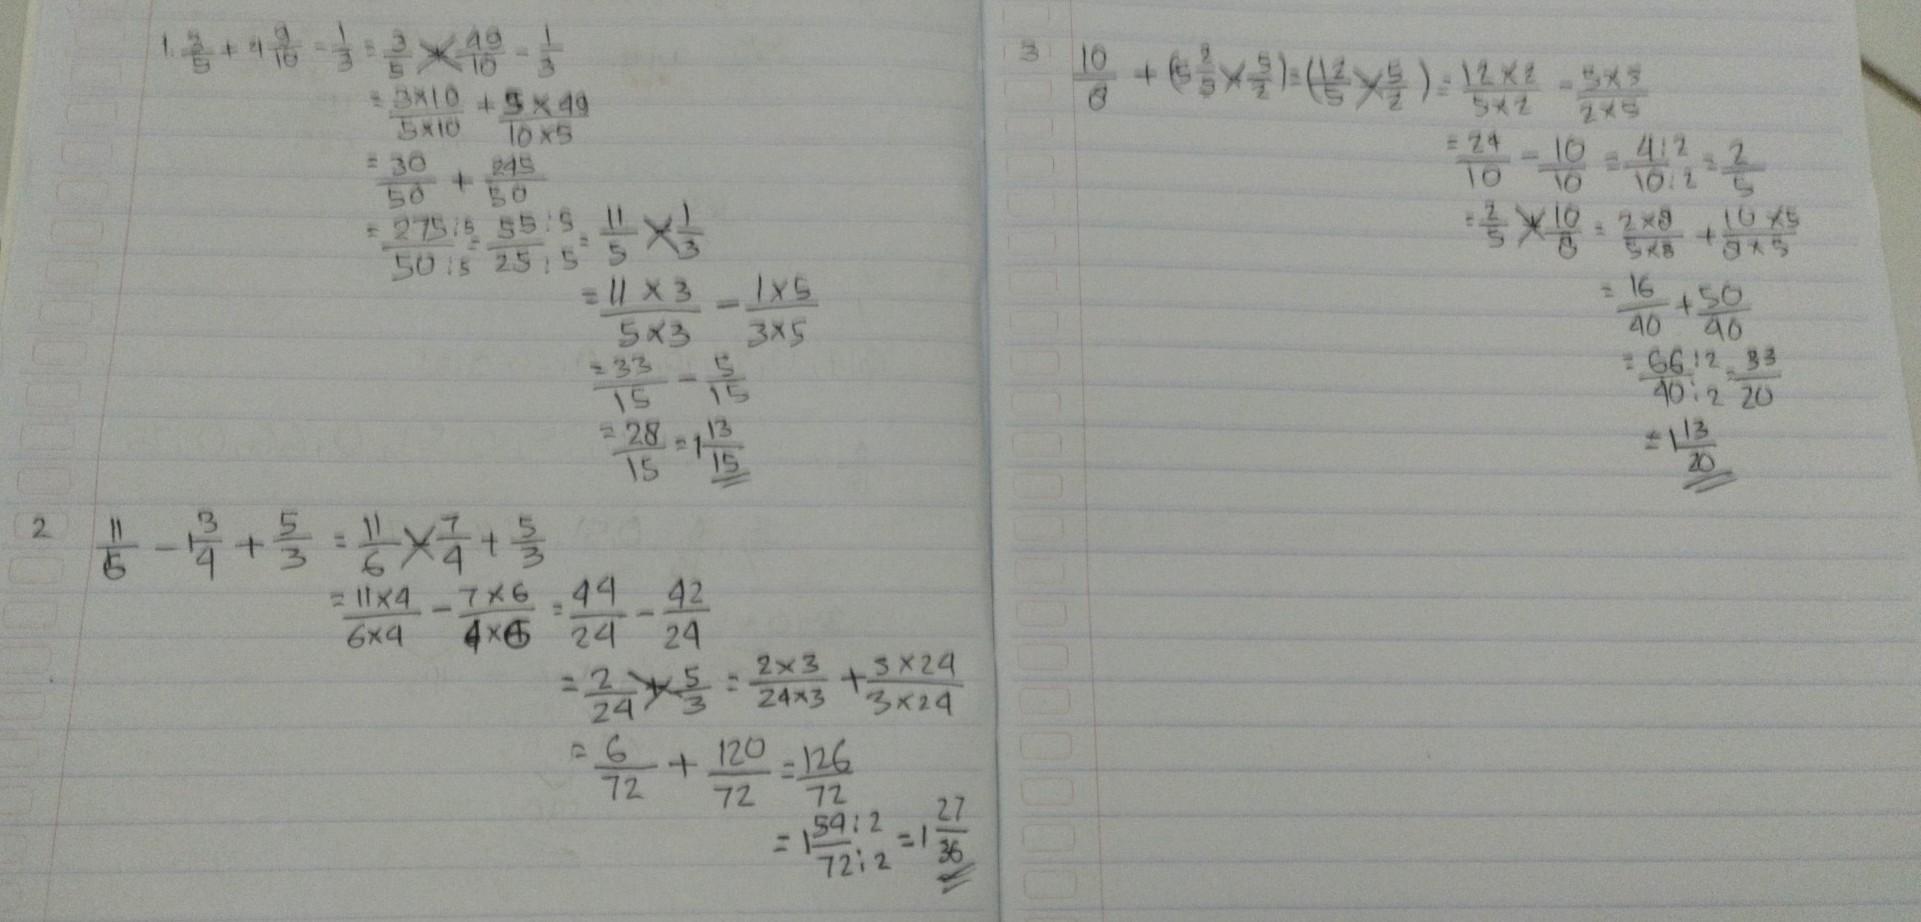 1. 3/5 + 4 9/10 - 1/3 = 3/5 + 49/10 - 1/3
= 3×10/5×10 + 5×49/10×5
= 30/50 + 245/50
= 275:5/50:5 = 55:5/25:5 = 11/5 × 1/3
= 11×3/5×3 - 1×5/3×5
= 33/15 - 5/15
= 28/15 = 1 13/15
2 11/6 - 1 3/4 + 5/3 = 11/6 × 7/4 + 5/3
= 11×4/6×4 - 7×6/4×6 = 44/24 - 42/24
= 2/24 + 5/3 = 2×3/24×3 + 5×24/3×24
= 6/72 + 120/72 = 126/72
= 1 54:2/72:2 = 1 27/36
3 10/8 + (5 2/5 × 5/2) = (12/5 × 5/2) = 12×2/5×2 - 5×5/2×5
= 24/10 - 10/10 = 4:2/10:2 = 2/5
= 2/5 + 10/8 = 2×8/5×8 + 10×5/8×5
= 16/40 + 50/40
= 66:2/40:2 = 33/20
= 1 13/20